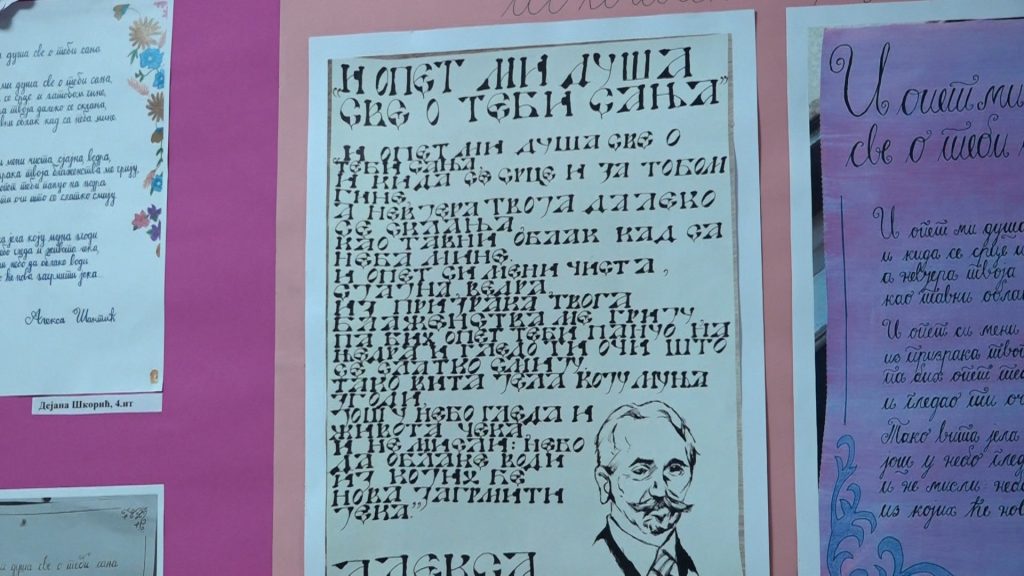 душа све о теби сања
ми душа све о теби сања,
се срце и за тобом гине,
твоја далеко се склања,
облак кад са неба мине.
мени чиста, сјајна, ведра,
твога блаженства ме грију,
опет теби пануо на њедра
очи што се слатко смију.
јела коју муња згоди
гледа и живота чека,
небо да облаке води
ће нова загрмити јека.
Алекса Шантић
Дејана Шкорић, 4.пт
душа све о теби сана
„И ОПЕТ МИ ДУША
СВЕ О ТЕБИ САЊА"
И ОПЕТ МИ ДУША СВЕ О
ТЕБИ САЊА.
И КИДА СЕ СРЦЕ И ЗА ТОБОМ
ГИНЕ,
А НЕВЈЕРА ТВОЈА ДАЛЕКО
СЕ СКЛАЊА,
КАО ТАВНИ ОБЛАК КАД СА
НЕБА МИНЕ.
И ОПЕТ СИ МЕНИ ЧИСТА,
СЈАЈНА, ВЕДРА,
ИЗ ПРИЗРАКА ТВОГА
БЛАЖЕНСТВА МЕ ГРИЈУ,
ПА БИХ ОПЕТ ТЕБИ ПАНУО НА
ЊЕДРА И ГЛЕДО ТИ ОЧИ ШТО
СЕ СЛАТКО СМИЈУ.
ТАКО ВИТА ЈЕЛА КОЈУ МУЊА
ЗГОДИ
ЈОШ У НЕБО ГЛЕДА И
ЖИВОТА ЧЕКА
И НЕ МИСЛИ: НЕБО
ДА ОБЛАКЕ ВОДИ
ИЗ КОЈИХ ЋЕ
НОВА ЗАГРМИТИ
ЈЕКА."
АЛЕКСА
И опет ми
све о теби
И опет ми душа
и кида се срце и
а невјера твоја
као тавни облак
И опет си мени
из призрака твог
па бих опет теб
и гледао ти оч
Тако вита јела
још у небо глед
и не мисли: неб
из којих ће нов